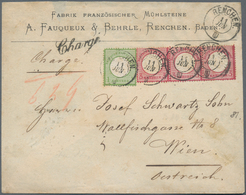 FABRIK FRANZÖSISCHER MÜHLSTEINE
A. FAUQUEUX & BEHRLE, RENCHEN, BADEN
Chargé
Chargé.
RENCHEN
Herrn Josef Schwartz Sohn
Wallfischgasse No 8
Wien
Oestreich